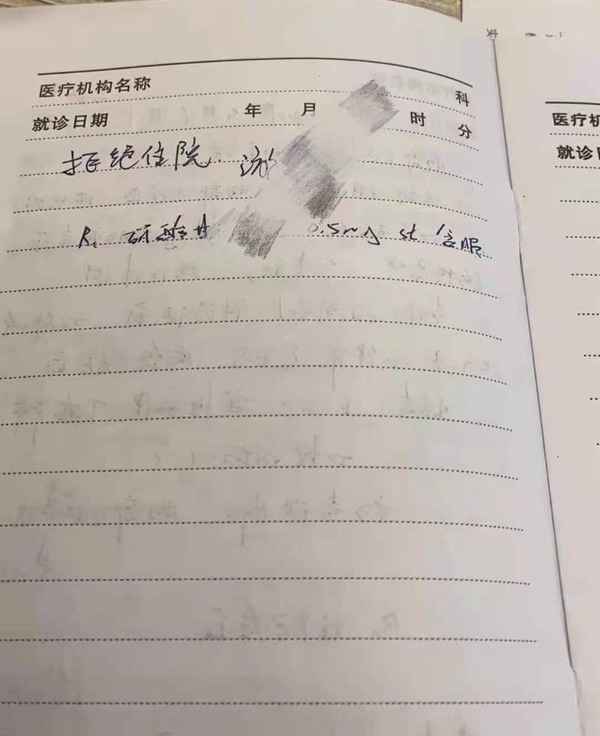 医疗机构名称 科
就诊日期 年 月 时 分
拒绝住院.
R: 硝酸甘 0.5mg st 含服
医疗机
就诊日